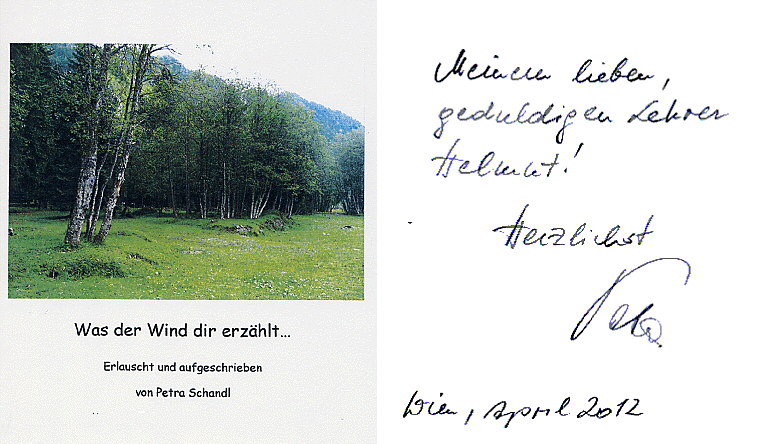 Was der Wind dir erzählt...
Erlauscht und aufgeschrieben
von Petra Schandl
Meinem lieben,
geduldigen Lehrer
Helmut!
Herzlichst
Petra
Wien, April 2012